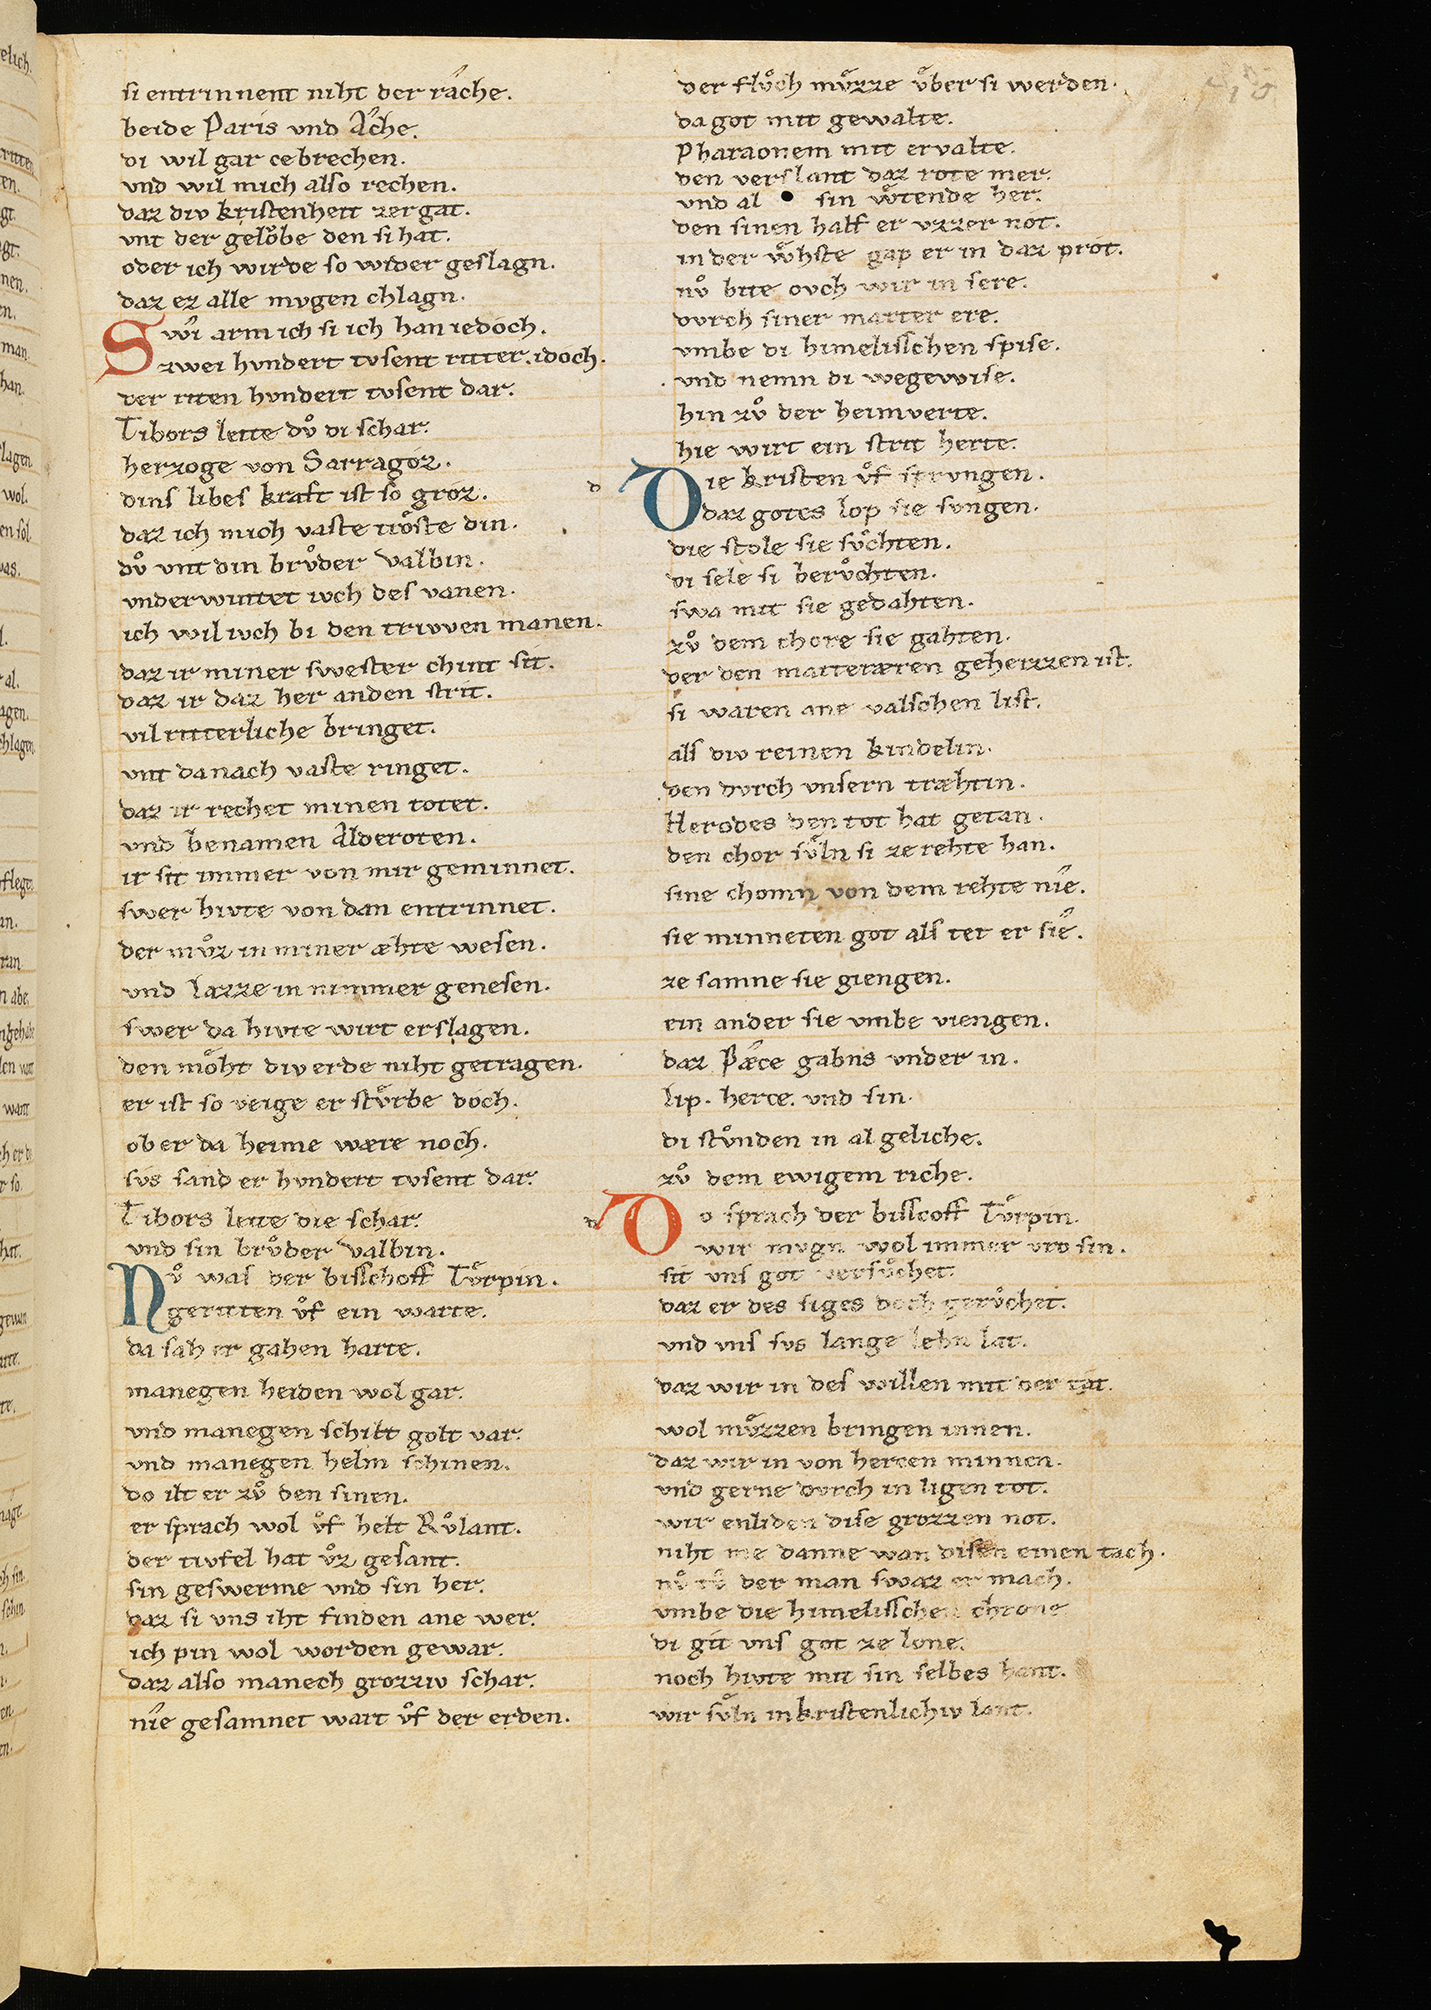 si entrinnent niht der râche.
beide Paris vnd Âche.
di wil gar cebrechen.
vnd wil mich also rechen.
daz div kristenheit zergat.
vnt der gelͦbe den si hat.
oder ich wirde so wider geslagn.
daz ez alle mvgen chlagn.
Swi arm ich si ich han iedoch.
zwei hvndert tvsent ritter. idoch.
der riten hvndert tvsent dar.
Tibors leite dvͦ di schar.
herzoge von Sarragoz.
dins libes kraft ist so groz.
daz ich mich vaste trͦste din.
dvͦ vnt din brvͦder Valbin.
vnderwintet iwch des vanen.
ich wil iwch bi den triwen manen.
daz ir miner swester chint sit.
daz ir daz her an den strit.
vil ritterliche bringet.
vnt da nach vaste ringet.
daz ir rechet minen toten.
vnd benamen Alderoten.
ir sit immer von mir geminnet.
swer hivte von dan entrinnet.
der mvͦz in miner æhte wesen.
vnd lazze in nimmer genesen.
swer da hivte wirt erslagen.
den mͦht div erde niht getragen.
er ist so veige er stvͤrbe doch.
ob er da heime wære noch.
svs sand er hvndert tvsent dar.
Tibors leite die schar.
vnd sin brvͦder Valbin.
Nvͦ was der bisschoff Tvͤrpin.
geritten vͦf ein warte.
da sah er gahen harte.
manegen heiden wol gar.
vnd manegen schilt golt var.
vnd manegen helm schinen.
do ilt er zvͦ den sinen.
er sprach wol vͦf helt Rvͦlant.
der tivfel hat vͦz gesant.
sin geswerme vnd sin her.
daz si vns iht finden ane wer.
ich pin wol worden gewar.
daz also manech grozziv schar.
nie gesamnet wart vͦf der erden.
der flvͦch mvͤzze vͤber si werden.
da got mit gewalte.
Pharaonem mit ervalte.
den verslant daz rote mer.
vnd al sin wͤtende her.
den sinen half er vzzer not.
in der wͦhste gap er in daz prot.
nvͦ bite ovch wir in sere.
dvrch siner marter ere.
vmbe di himelisschen spise.
vnd nemn di wegewise.
hin zvͦ der heimverte.
hie wirt ein strit herte.
Die kristen vͦf sprvngen.
daz gotes lop sie svngen.
die stole sie svͦchten.
di sele si bervͦchten.
swa mit sie gedahten.
zvͦ dem chore sie gahten.
der den marteræren geheizzen ist.
si waren ane valschen list.
als div reinen kindelin.
den dvrch vnsern træhtin.
Herodes den tot hat getan.
den chor svͤln si ze rehte han.
sine chomn von dem rehte nie.
sie minneten got als tet er sie.
ze samne sie giengen.
ein ander sie vmbe viengen.
daz Pæce gabns vnder in.
lip. herce. vnd sin.
di stvͦnden in al geliche.
zvͦ dem ewigem riche.
Do sprach der bisscoff Tvͤrpin.
wir mvgn wol immer vro sin.
sit vns got versvͦchet.
daz er des siges doch gervͦchet.
vnd vns svs lange lebn lat.
daz wir in des willen mit der tat.
wol mvͤzzen bringen innen.
daz wir in von hercen minnen.
vnd gerne dvrch in ligen tot.
wir enliden dise grozzen not.
niht me danne wan disen einen tach.
nvͦ tvͦ der man swaz er mach.
vmbe die himelisschen chrone
di git vns got ze lone.
noch hivte mit sin selbes hant.
wir svͤln in kristenlichiv lant.